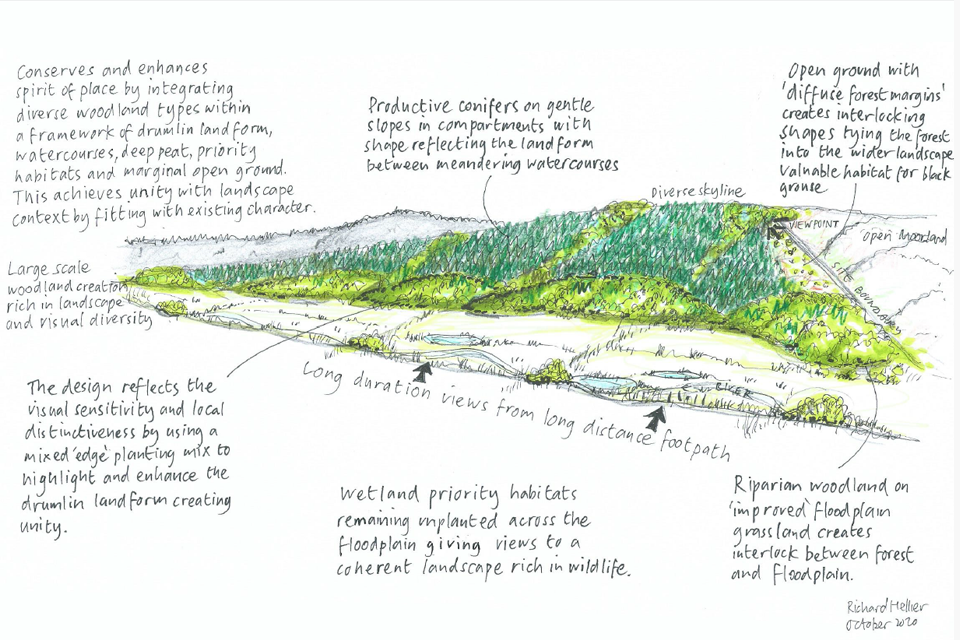 Conserves and enhances
spirit of place by integrating
diverse woodland types within
a framework of drumlin landform,
watercourses, deep peat, priority
habitats and marginal open ground.
This achieves unity with landscape
context by fitting with existing character.
Productive conifers on gentle
slopes in compartments with
shape reflecting the landform
between meandering watercourses
Open ground with
'diffuse forest margins'
creates interlocking
shapes tying the forest
into the wider landscape
valuable habitat for black
grouse
Diverse skyline
VIEWPOINT
open moorland
SITE BOUNDARY
Large scale
woodland creation
rich in landscape
and visual diversity
The design reflects the
visual sensitivity and local
distinctiveness by using a
mixed 'edge' planting mix to
highlight and enhance the
drumlin landform creating
unity.
Long duration views from long distance footpath
RIVER
Wetland priority habitats
remaining unplanted across the
floodplain giving views to a
coherent landscape rich in wildlife.
Riparian woodland on
'improved' floodplain
grassland creates
interlock between forest
and floodplain.
Richard Hellier
October 2020